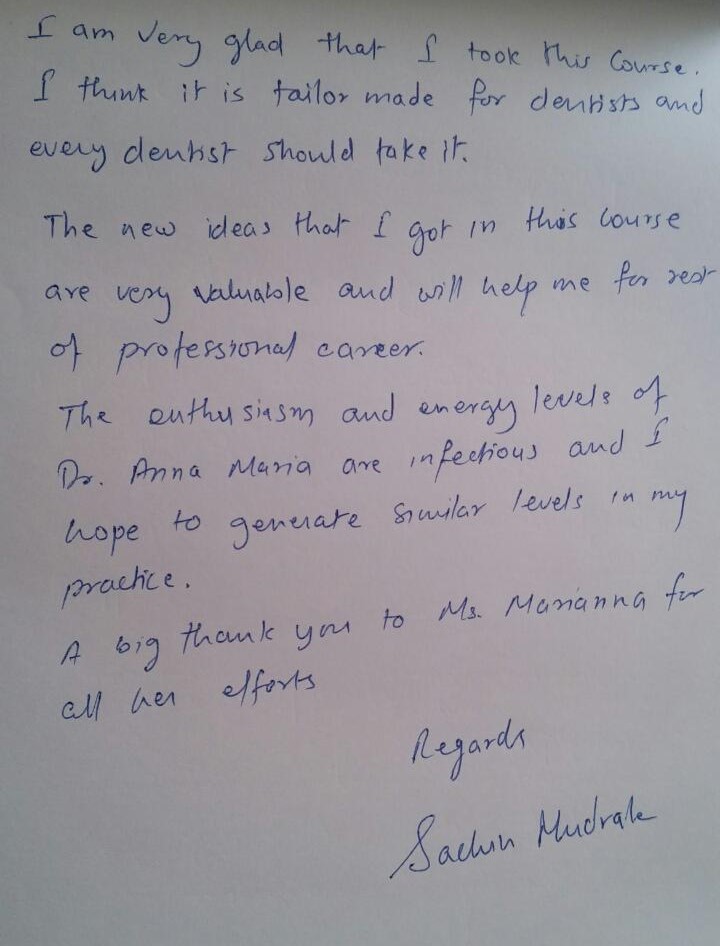 I am very glad that I took this course.
I think it is tailor made for dentists and
every dentist should take it.
The new ideas that I got in this course
are very valuable and will help me for rest
of professional career.
The enthusiasm and energy levels of
Dr. Anna Maria are infectious and I
hope to generate similar levels in my
practice.
A big thank you to Ms. Marianna for
all her efforts
Regards
Sachin